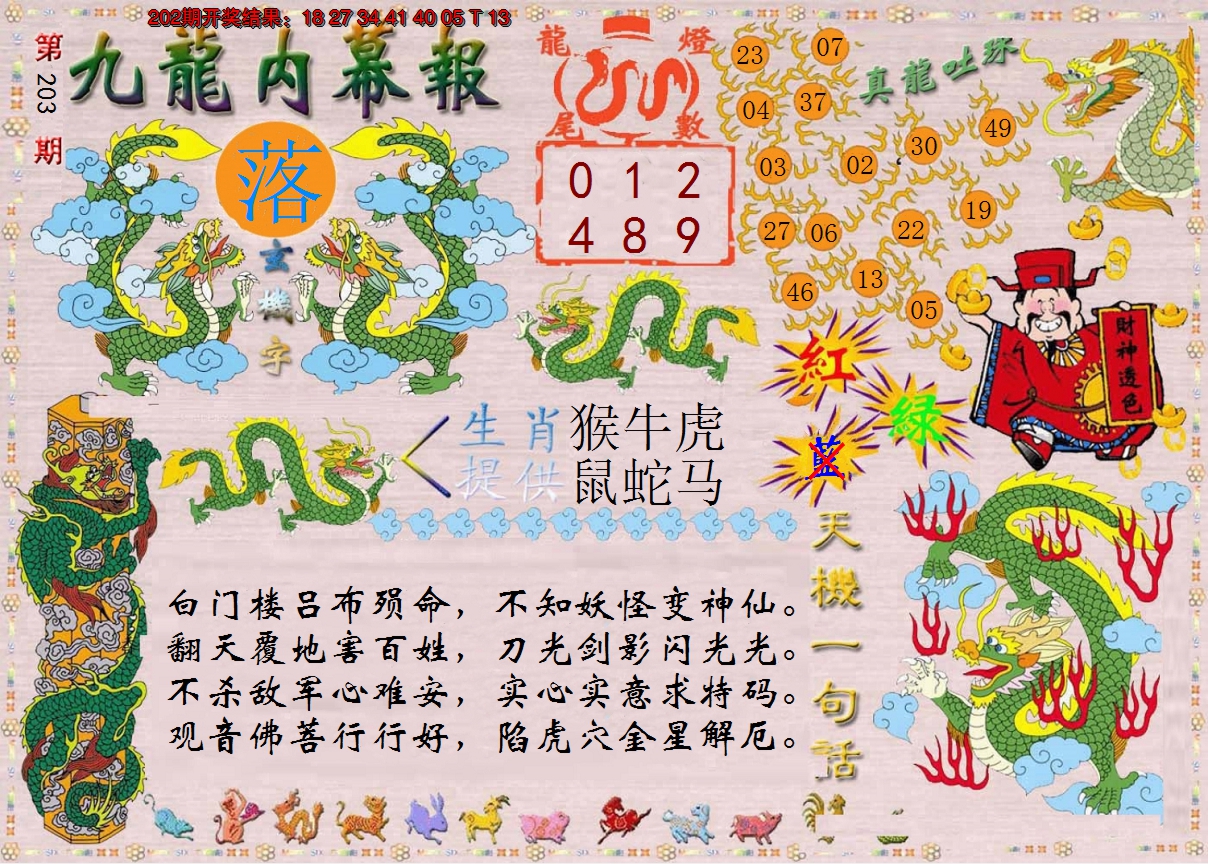 202期开奖结果：18 27 34 41 40 05 T 13
第203期
九龍内幕報
落
玄機字
龍燈尾數
0 1 2
4 8 9
真龍吐珠
23 07
04 37
03 02 30 49
27 06 22 19
46 13 05
財神透色
紅
綠
藍
生肖提供
猴牛虎
鼠蛇马
天機一句話
白门楼吕布殒命，不知妖怪变神仙。
翻天覆地害百姓，刀光剑影闪光光。
不杀敌军心难安，实心实意求特码。
观音佛菩行行好，陷虎穴金星解厄。